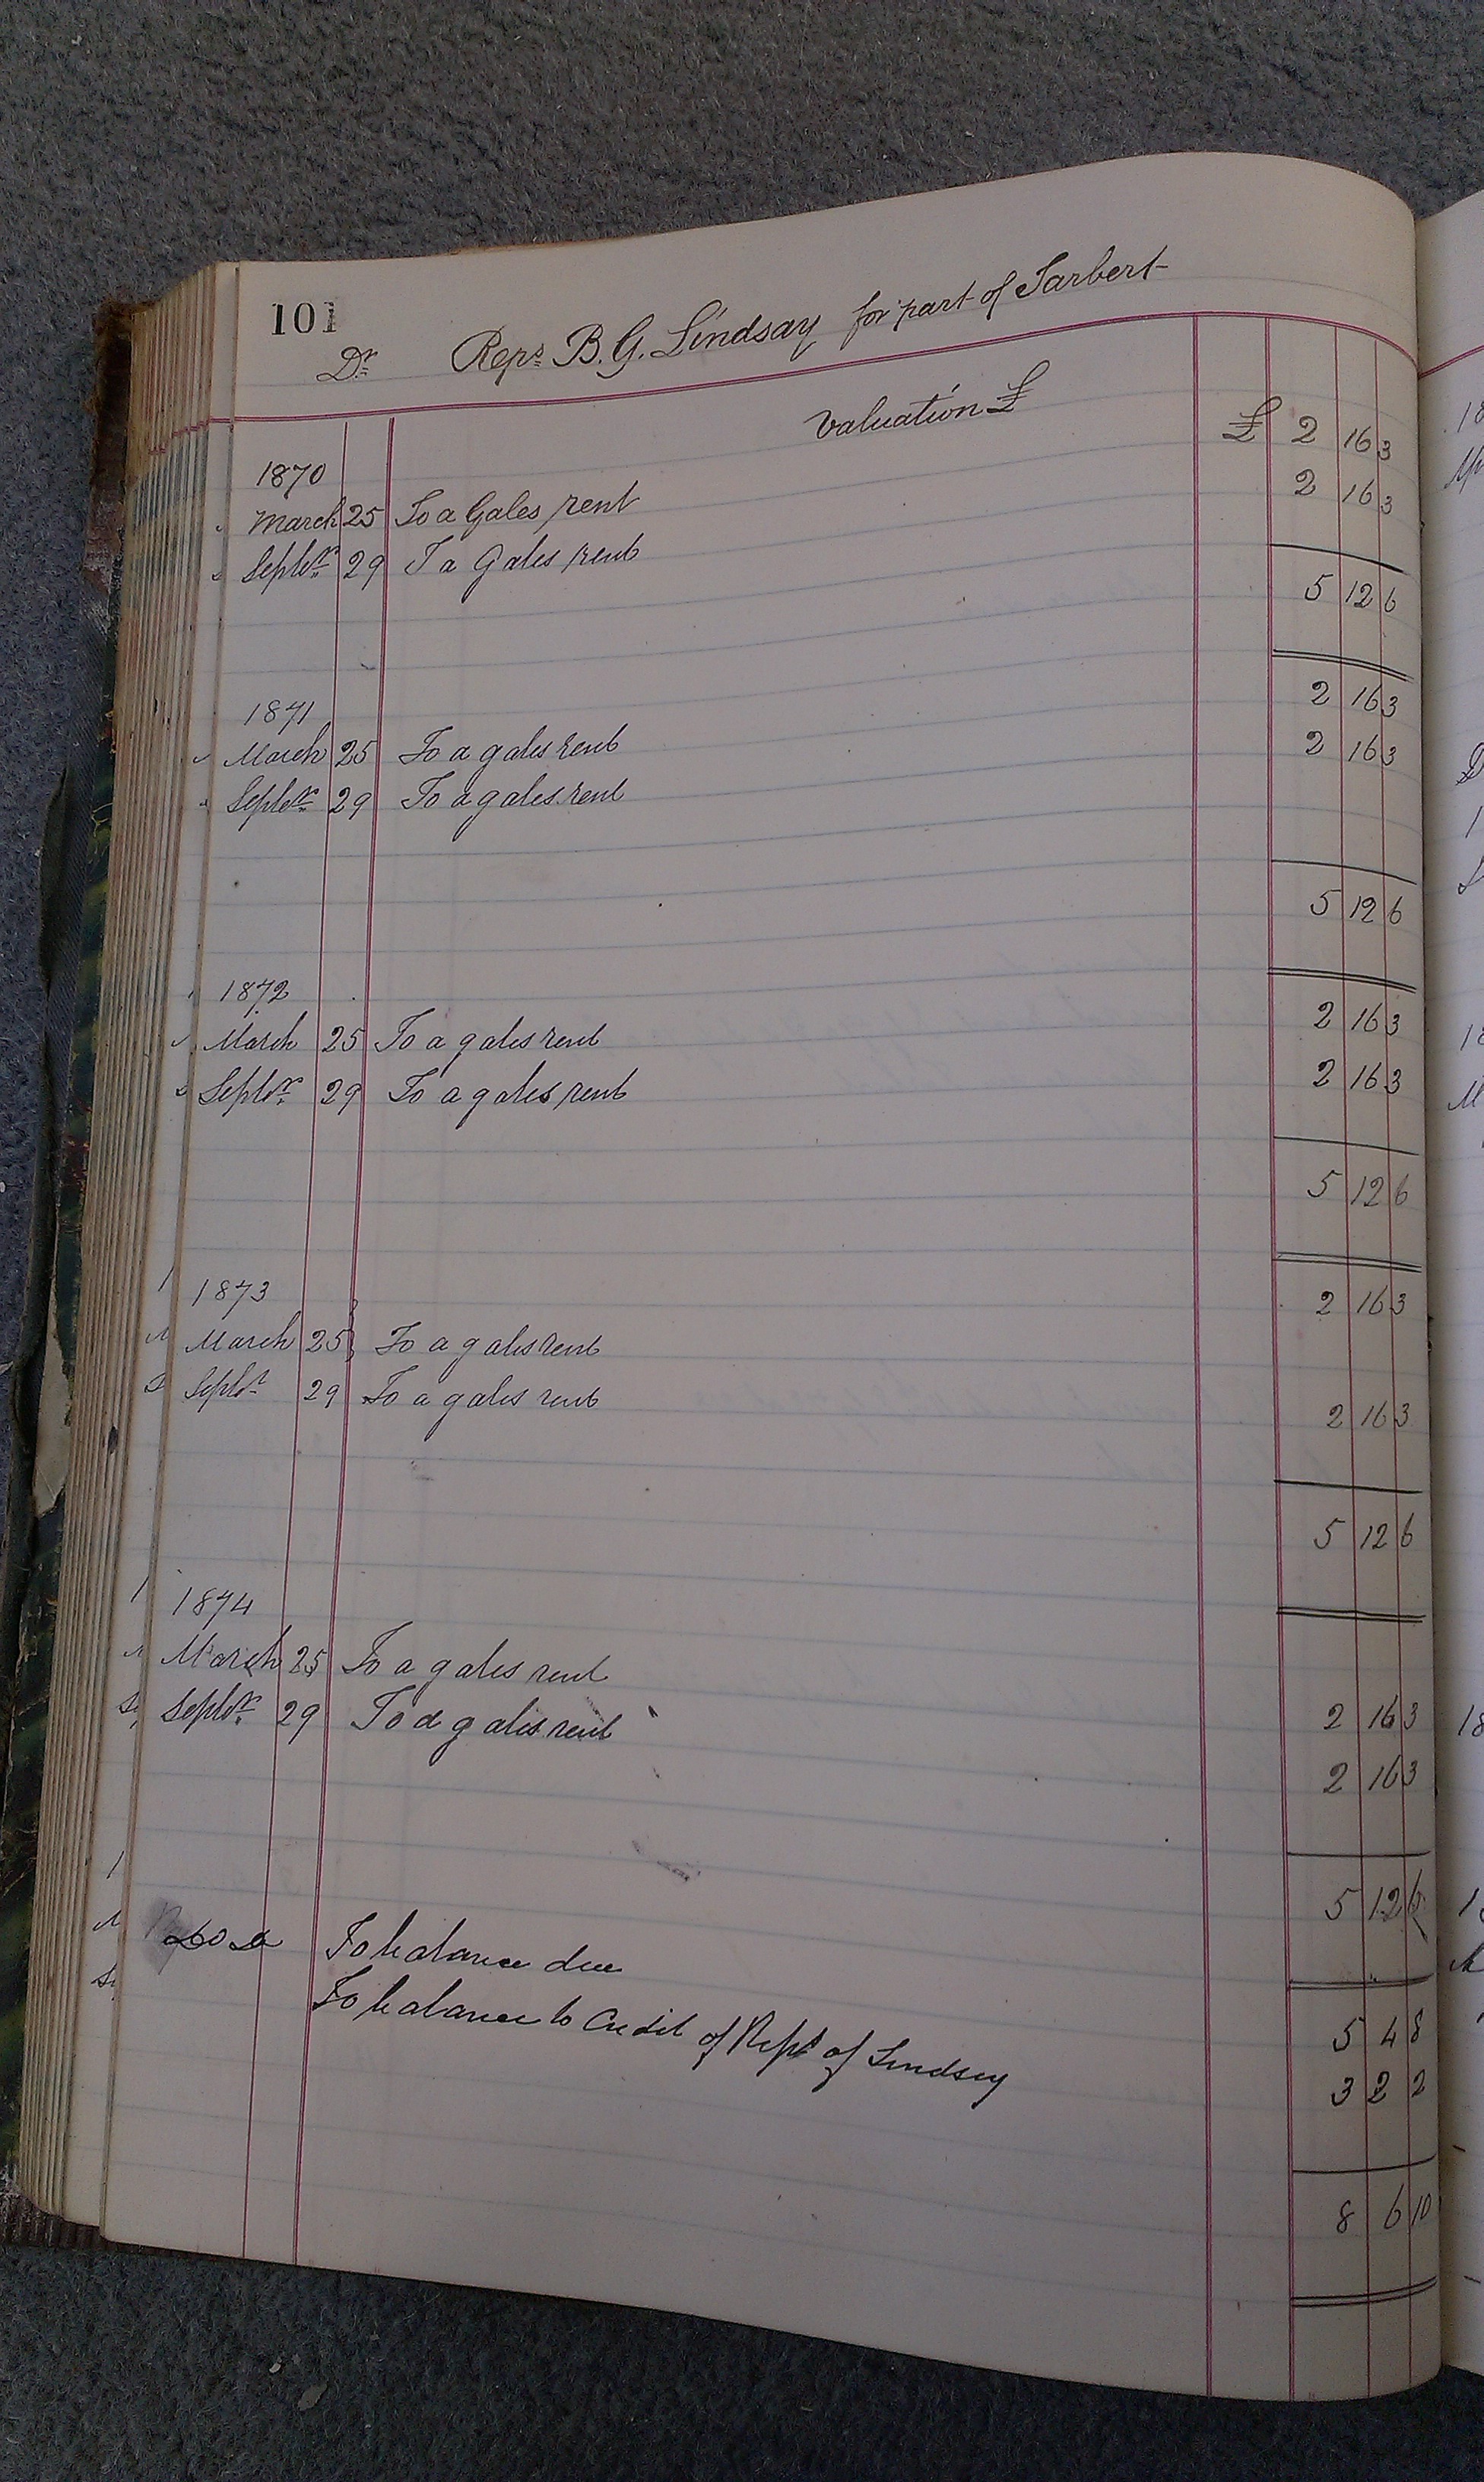 101
Dr. Reps. B. G. Lindsay for part of Tarbert
Valuation £
1870
March 25 To a Gales rent £ 2 16 3
Septr. 29 T a Gales rent 2 16 3
5 12 6
1871
March 25 To a gales rent 2 16 3
Septr. 29 To a gales rent 2 16 3
5 12 6
1872
March 25 To a gales rent 2 16 3
Septr. 29 To a gales rent 2 16 3
5 12 6
1873
March 25 To a gales rent 2 16 3
Septr 29 To a gales rent 2 16 3
5 12 6
1874
March 25 To a gales rent 2 16 3
Septr. 29 To a gales rent 2 16 3
5 12 6
To balance due 5 4 8
To balance to Credit of Reps of Lindsey 3 2 2
8 6 10